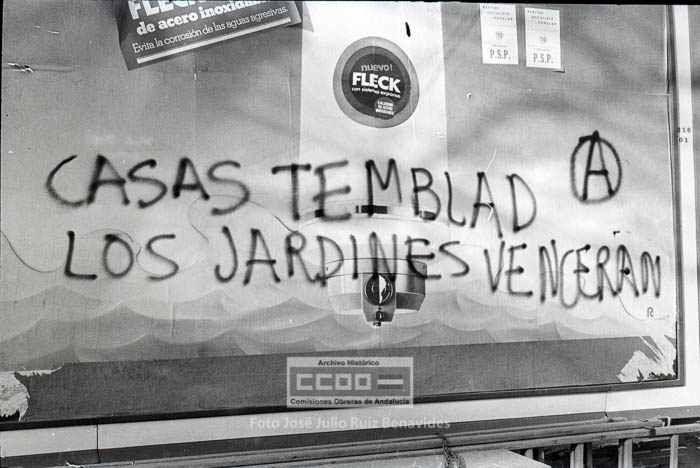 FLECK
de acero inoxidable
Evita la corrosión de las aguas agresivas.
PARTIDO
SOCIALISTA
POPULAR
P.S.P.
PARTIDO
SOCIALISTA
POPULAR
P.S.P.
nuevo!
FLECK
con sistema expanex
216
01
CASAS TEMBLAD A
LOS JARDINES VENCERAN
R
Archivo Histórico
CCOO
Comisiones Obreras de Andalucía
Foto José Julio Ruiz Benavides